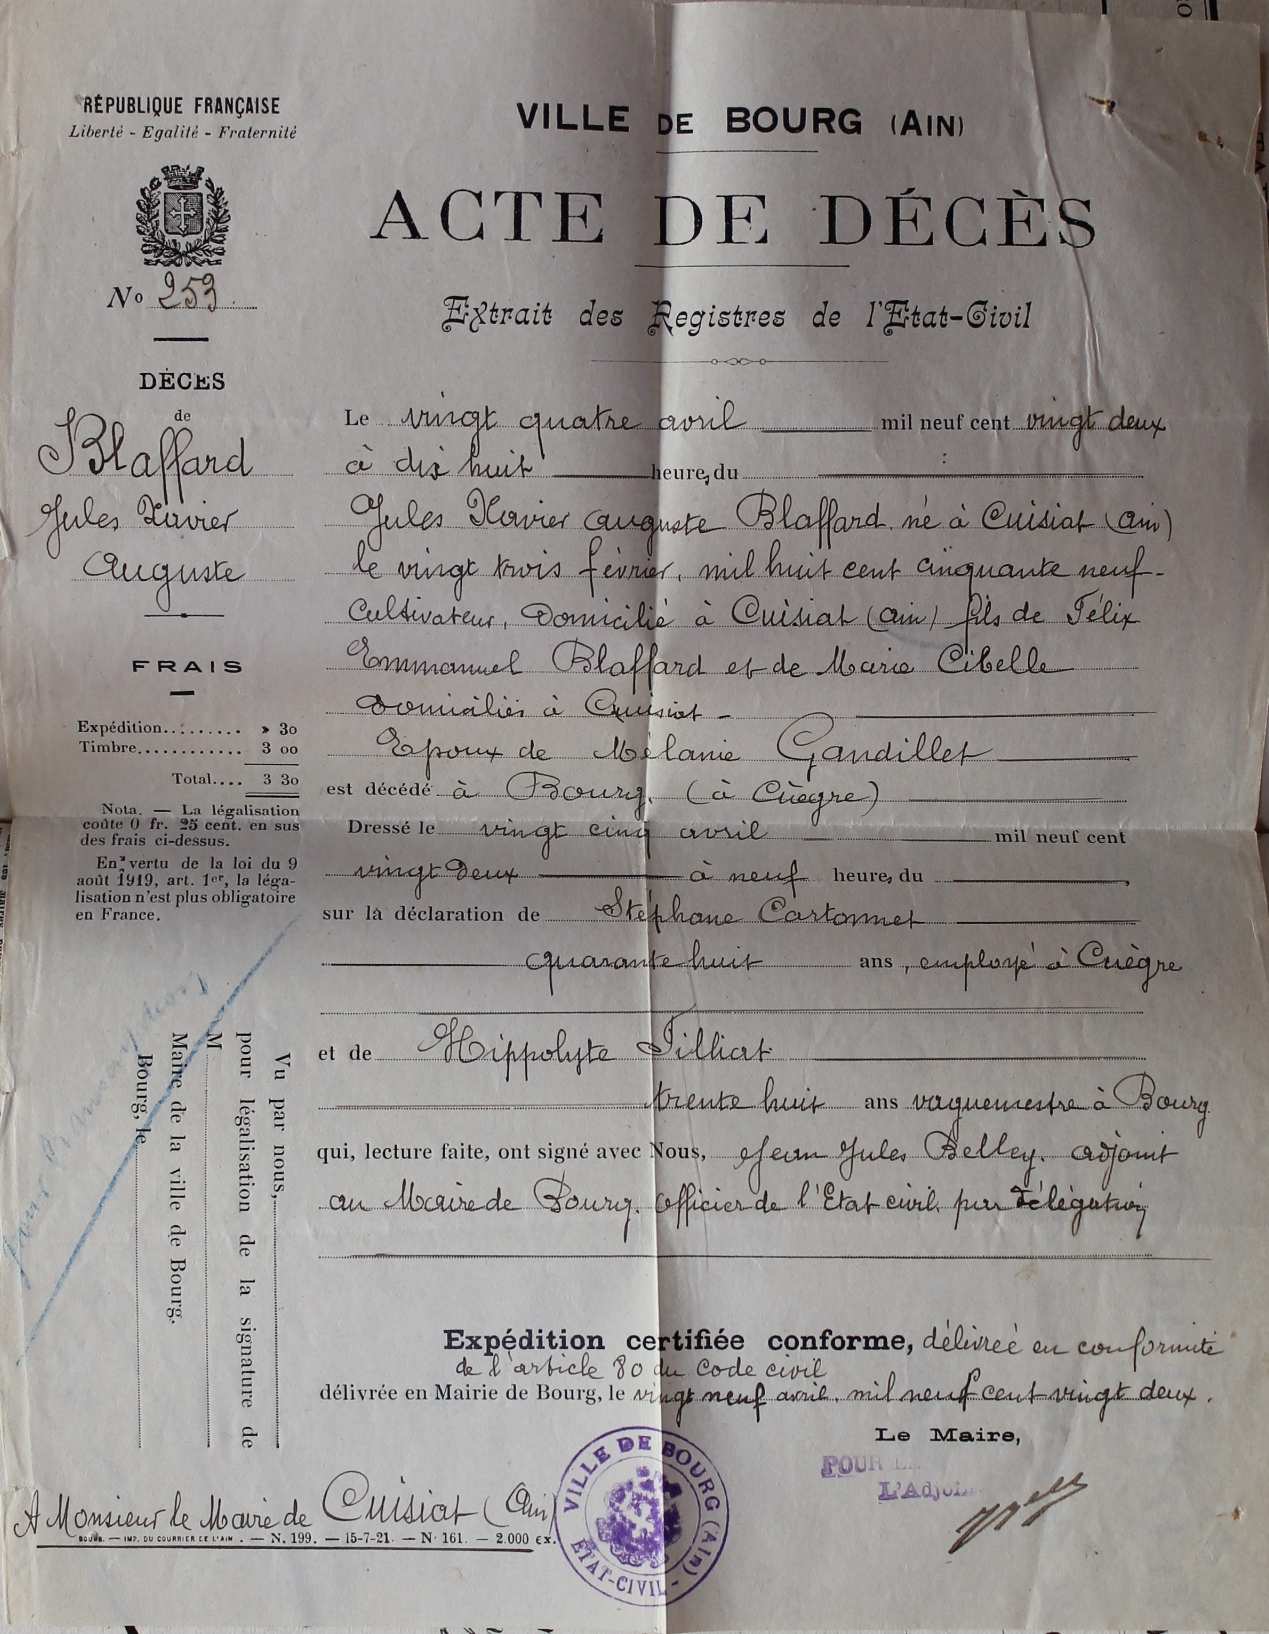 RÉPUBLIQUE FRANÇAISE
Liberté - Egalité - Fraternité
No 253
DÉCÈS
de
Blaffard
Jules Xavier
Auguste
FRAIS
Expédition......... » 30
Timbre............ 3 00
Total.... 3 30
Nota. — La légalisation
coûte 0 fr. 25 cent. en sus
des frais ci-dessus.
En vertu de la loi du 9
août 1919, art. 1er, la léga-
lisation n'est plus obligatoire
en France.
Vu par nous,
pour légalisation de la signature de
M
Maire de la ville de Bourg.
Bourg, le
VILLE DE BOURG (AIN)
ACTE DE DÉCÈS
Extrait des Registres de l'Etat-Civil
Le vingt quatre avril mil neuf cent vingt deux
à dix huit heure, du
Jules Xavier Auguste Blaffard né à Cuisiat (Ain)
le vingt trois février, mil huit cent cinquante neuf-
Cultivateur, Domicilié à Cuisiat (Ain) fils de Félix
Emmanuel Blaffard et de Marie Cibelle
Domiciliés à Cuisiat -
Epoux de Mélanie Gandillet
est décédé à Bourg, (à Cuègre)
Dressé le vingt cinq avril mil neuf cent
vingt deux à neuf heure, du
sur la déclaration de Stéphane Cartonnet
quarante huit ans, employé à Cuègre
et de Hippolyte Tilliat
trente huit ans vaguemestre à Bourg
qui, lecture faite, ont signé avec Nous, Jean Jules Belley, adjoint
au Maire de Bourg, Officier de l'Etat civil, par délégation
Expédition certifiée conforme, délivrée en conformité
de l'article 80 du Code civil
délivrée en Mairie de Bourg, le vingt neuf avril, mil neuf cent vingt deux.
Le Maire,
POUR LE
L'Adjoint
VILLE DE BOURG (AIN)
ÉTAT-CIVIL
A Monsieur le Maire de Cuisiat (Ain)
BOURG. — IMP. DU COURRIER DE L'AIN. — N. 199. — 15-7-21. — N° 161. — 2.000 EX.